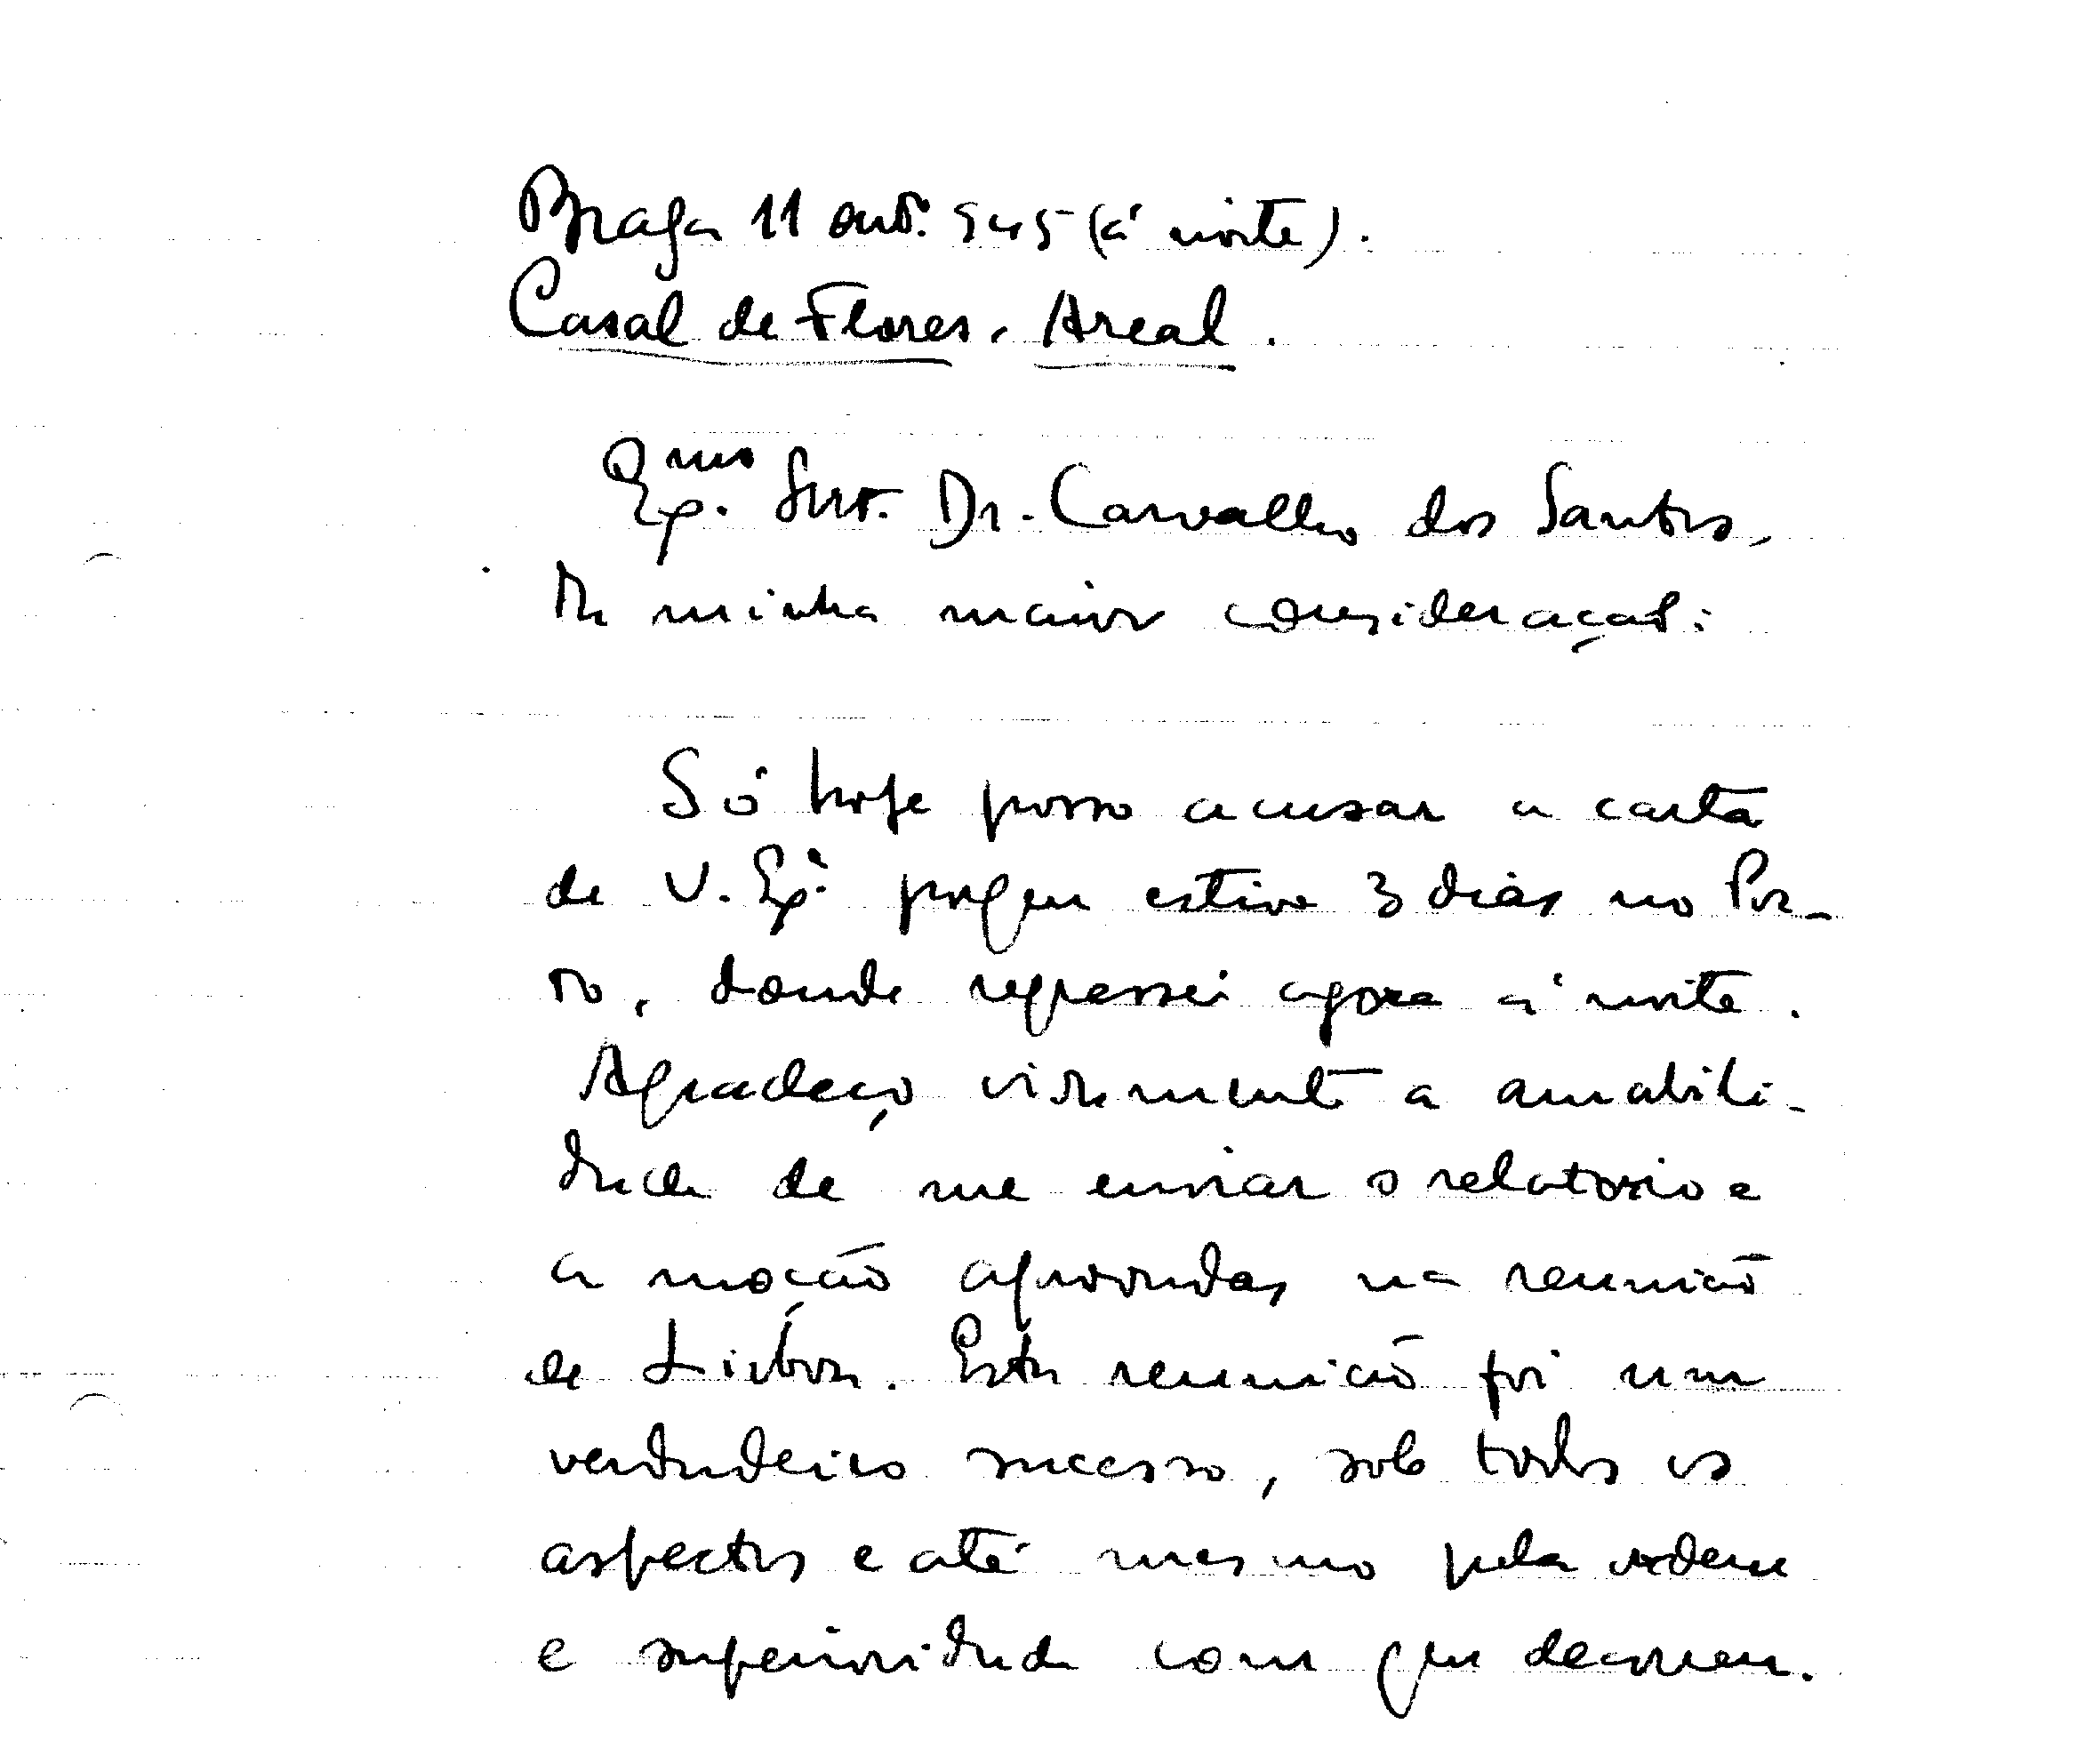 Braga 11 out. 945 (á noite).
Casal de Flores, Areal.
Ex.mo Snr. Dr. Carvalho dos Santos,
Da minha maior consideração:
Só hoje posso acusar a carta
de V. Ex.ª porque estive 3 dias no Por-
to, donde regressei agora á noite.
Agradeço vivamente a amabili-
dade de me enviar o relatorio e
a moção aprovadas na reunião
de Lisboa. Esta reunião foi um
verdadeiro sucesso, sob todos os
aspectos e até mesmo pela ordem
e superioridade com que decorreu.